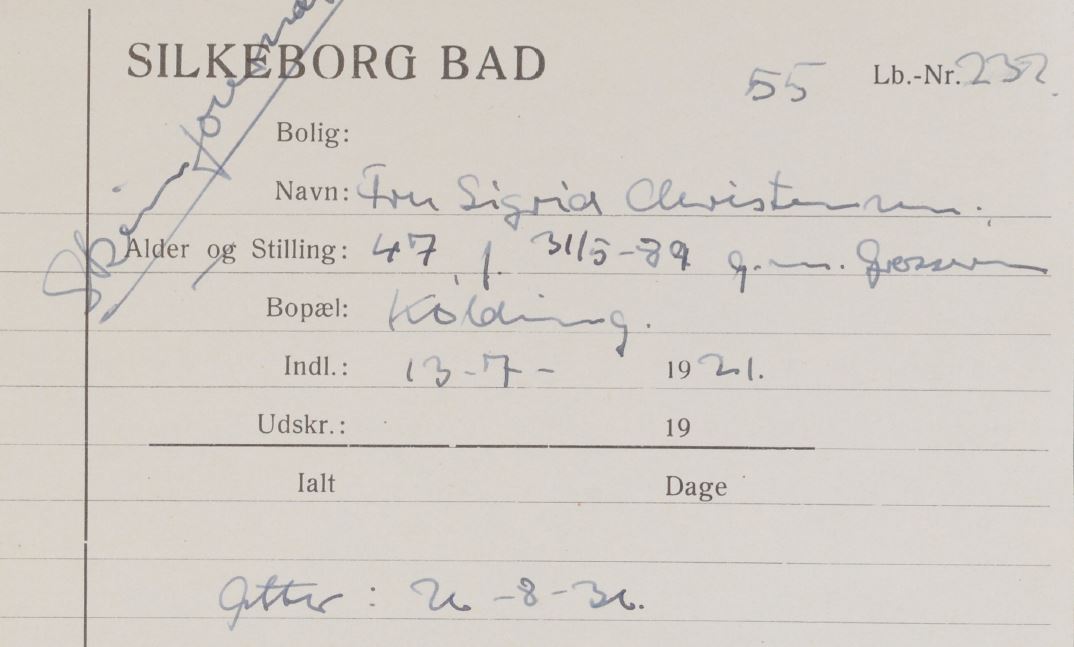 SILKEBORG BAD
55 Lb.-Nr. 232.
Bolig:
Navn: Fru Sigrid Christensen.
Alder og Stilling: 47 f. 31/5-89 g. m. Grosserer
Bopæl: Kolding.
Indl.: 13-7- 1921.
Udskr.: 19
Ialt Dage
: 26-8-36.